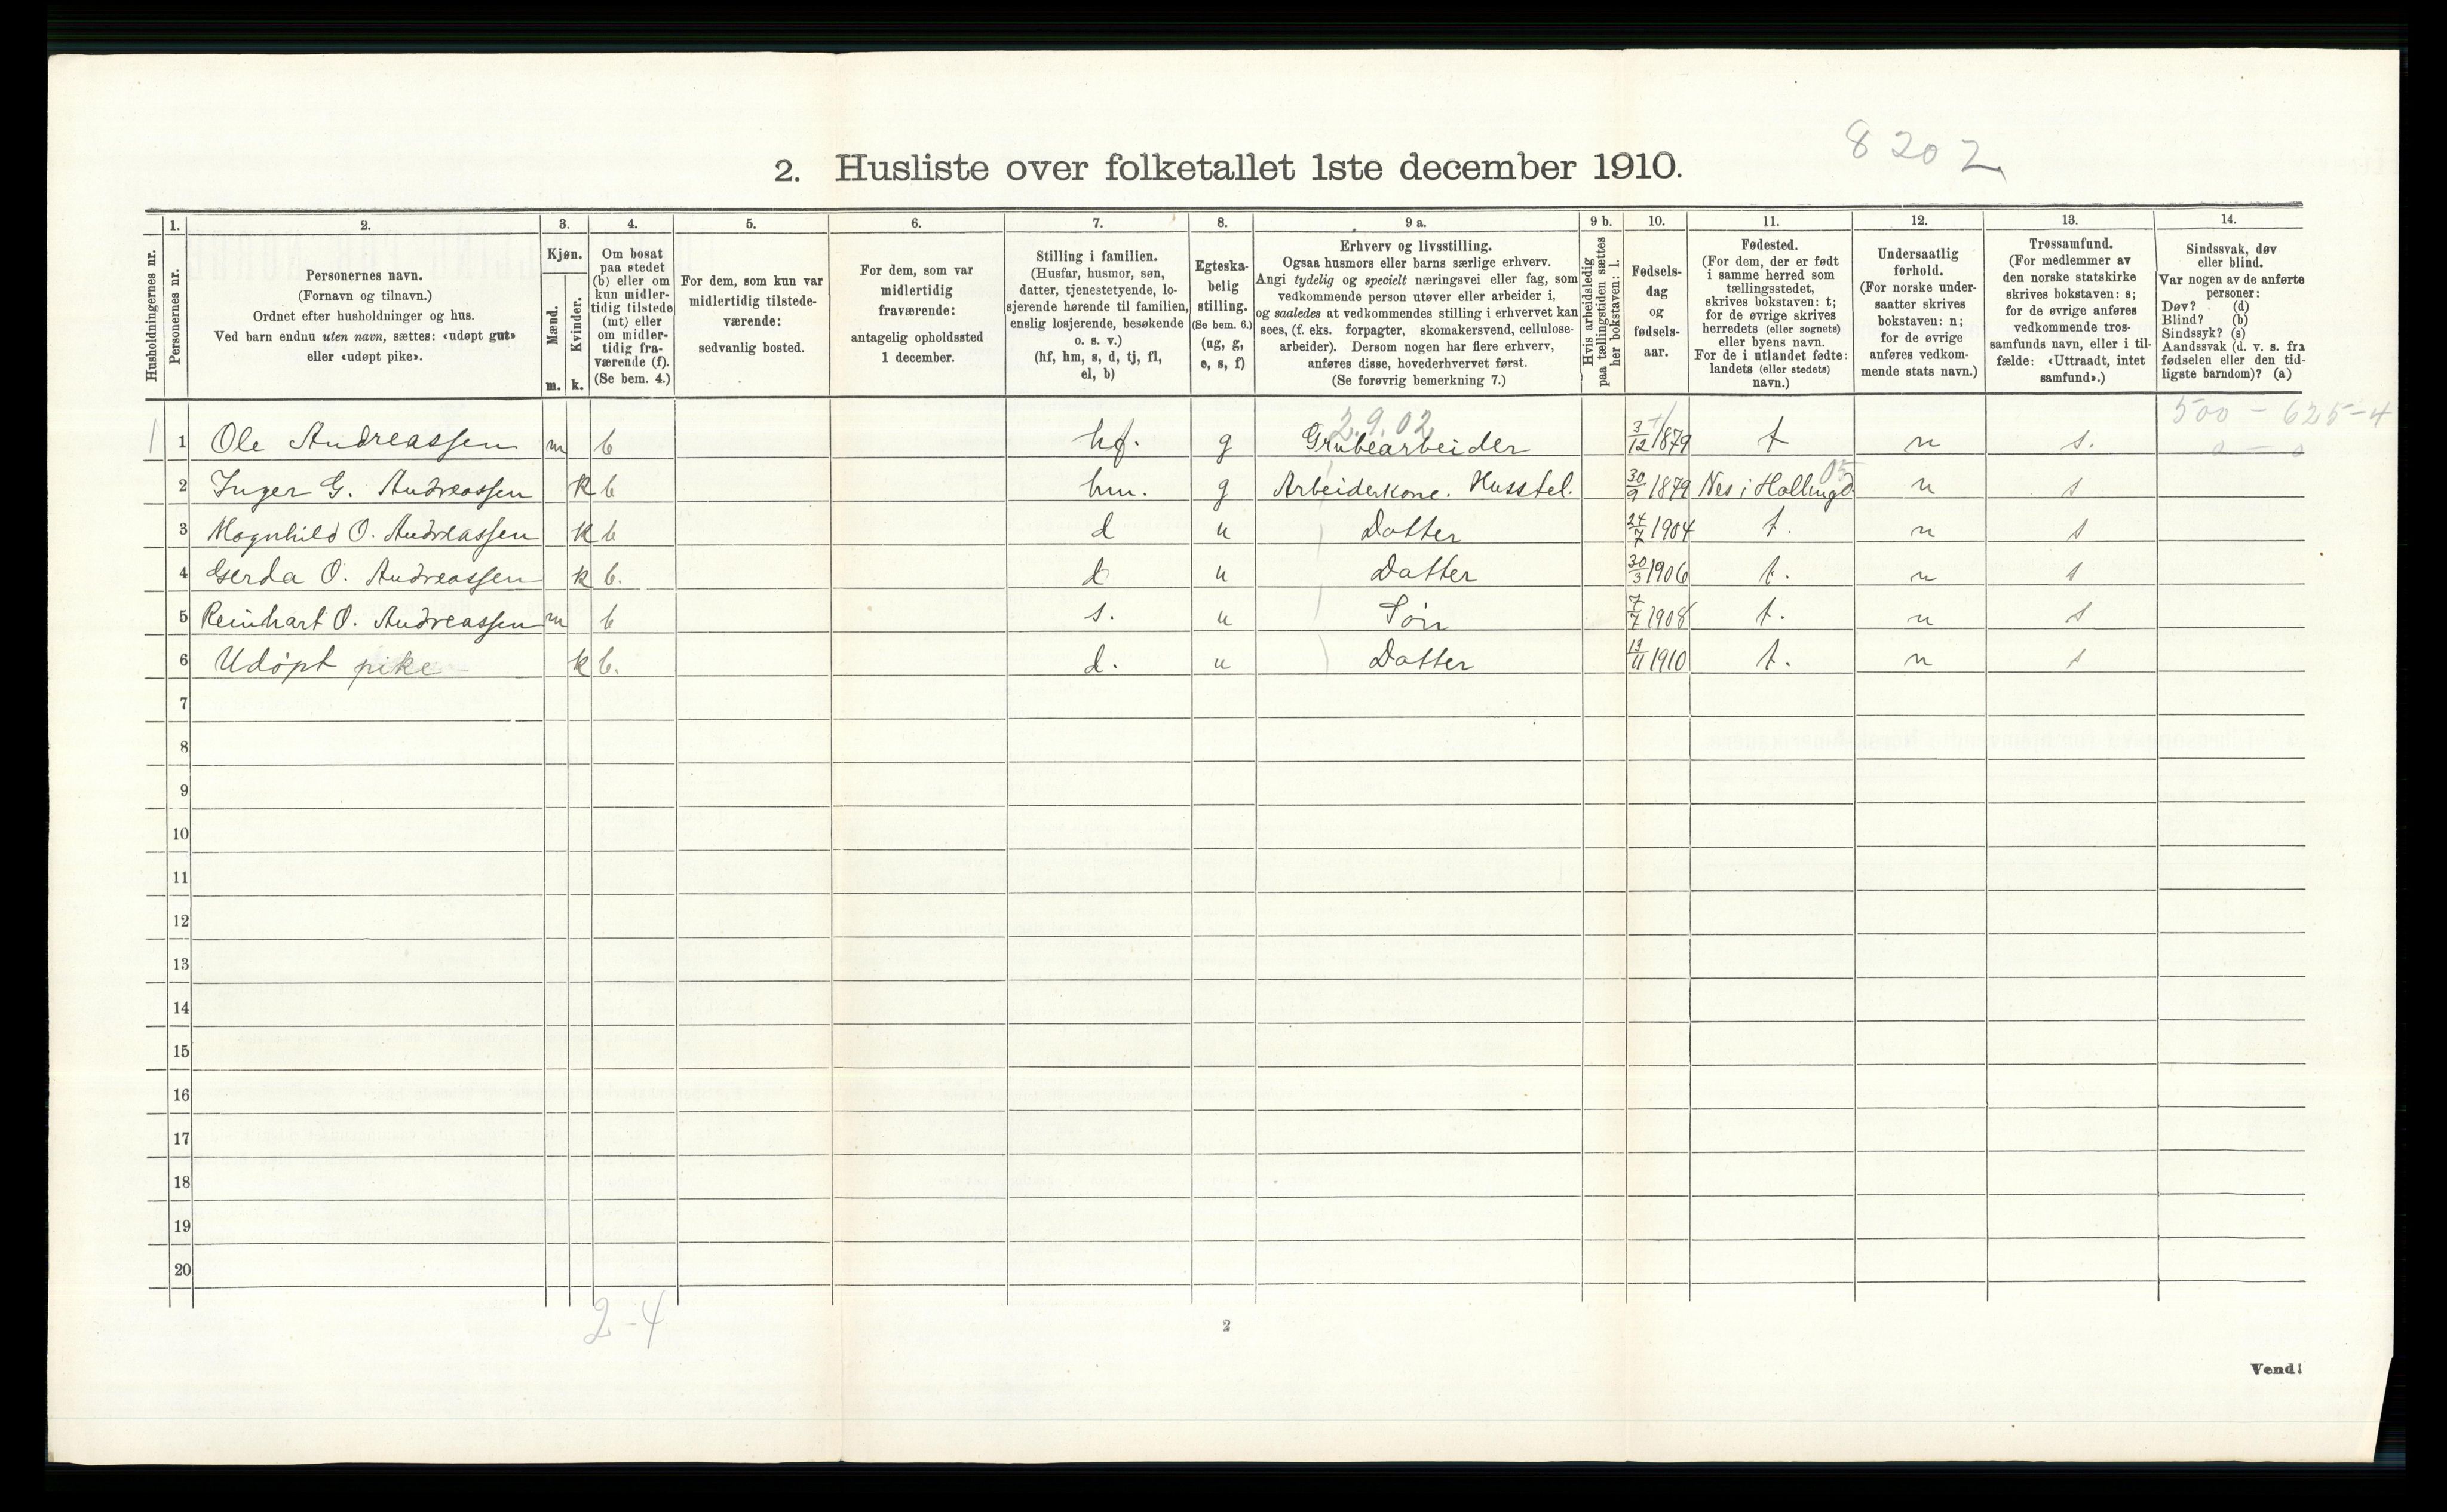 8202
2. Husliste over folketallet 1ste december 1910.
1. 2. 3. 4. 5. 6. 7. 8. 9 a. 9 b. 10. 11. 12. 13. 14.
Husholdningernes nr.
Personernes nr.
Personernes navn.
(Fornavn og tilnavn.)
Ordnet efter husholdninger og hus.
Ved barn endnu uten navn, sættes: «udøpt gut»
eller «udøpt pike».
Kjøn.
Mænd.
Kvinder.
m. k.
Om bosat
paa stedet
(b) eller om
kun midler-
tidig tilstede
(mt) eller
om midler-
tidig fra-
værende (f).
(Se bem. 4.)
For dem, som kun var
midlertidig tilstede-
værende:
sedvanlig bosted.
For dem, som var
midlertidig
fraværende:
antagelig opholdssted
1 december.
Stilling i familien.
(Husfar, husmor, søn,
datter, tjenestetyende, lo-
sjerende hørende til familien,
enslig losjerende, besøkende
o. s. v.)
(hf, hm, s, d, tj, fl,
el, b)
Egteska-
belig
stilling.
(Se bem. 6.)
(ug, g,
e, s, f)
Erhverv og livsstilling.
Ogsaa husmors eller barns særlige erhverv.
Angi tydelig og specielt næringsvei eller fag, som
vedkommende person utøver eller arbeider i,
og saaledes at vedkommendes stilling i erhvervet kan
sees, (f. eks. forpagter, skomakersvend, cellulose-
arbeider). Dersom nogen har flere erhverv,
anføres disse, hovederhvervet først.
(Se forøvrig bemerkning 7.)
Hvis arbeidsledig
paa tællingstiden sættes
her bokstaven: l.
Fødsels-
dag
og
fødsels-
aar.
Fødested.
(For dem, der er født
i samme herred som
tællingsstedet,
skrives bokstaven: t;
for de øvrige skrives
herredets (eller sognets)
eller byens navn.
For de i utlandet fødte:
landets (eller stedets)
navn.)
Undersaatlig
forhold.
(For norske under-
saatter skrives
bokstaven: n;
for de øvrige
anføres vedkom-
mende stats navn.)
Trossamfund.
(For medlemmer av
den norske statskirke
skrives bokstaven: s;
for de øvrige anføres
vedkommende tros-
samfunds navn, eller i til-
fælde: «Uttraadt, intet
samfund».)
Sindssvak, døv
eller blind.
Var nogen av de anførte
personer:
Døv? (d)
Blind? (b)
Sindssyk? (s)
Aandssvak (d. v. s. fra
fødselen eller den tid-
ligste barndom)? (a)
2.9.02 500 - 625-4
1 1 Ole Andreassen m b hf. g Grubearbeider 3/12 1879 t n s. 0 - 0
2 Inger G. Andreassen k b hm. g Arbeiderkone. Husstel. 30/9 1879 Nes i Hallingd. 05 n s
3 Magnhild O. Andreassen k b d u Datter 24/7 1904 t. n s
4 Gerda O. Andreassen k b. d u Datter 30/3 1906 t. n s
5 Reinhart O. Andreassen m b s. u Søn 7/7 1908 t. n s
6 Udøpt pike k b. d. u Datter 19/11 1910 t. n s
7
8
9
10
11
12
13
14
15
16
17
18
19
20
2-4
2
Vend!